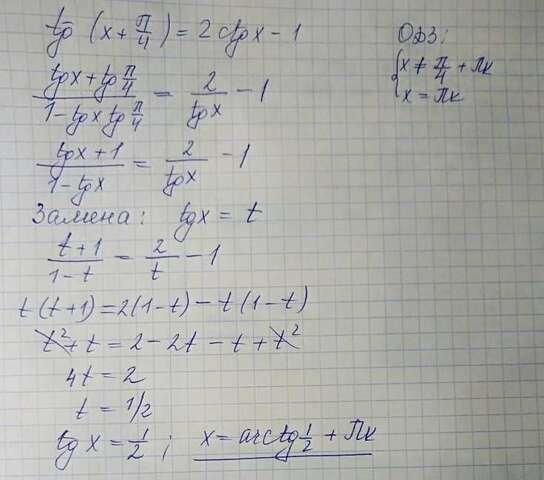 tg (x + π/4) = 2 ctg x - 1
ОДЗ:
{ x ≠ π/4 + πk
x = πk
(tg x + tg π/4)/(1 - tg x tg π/4) = 2/tg x - 1
(tg x + 1)/(1 - tg x) = 2/tg x - 1
Замена: tg x = t
(t + 1)/(1 - t) = 2/t - 1
t (t + 1) = 2(1 - t) - t (1 - t)
t² + t = 2 - 2t - t + t²
4t = 2
t = 1/2
tg x = 1/2 ; x = arctg 1/2 + πk